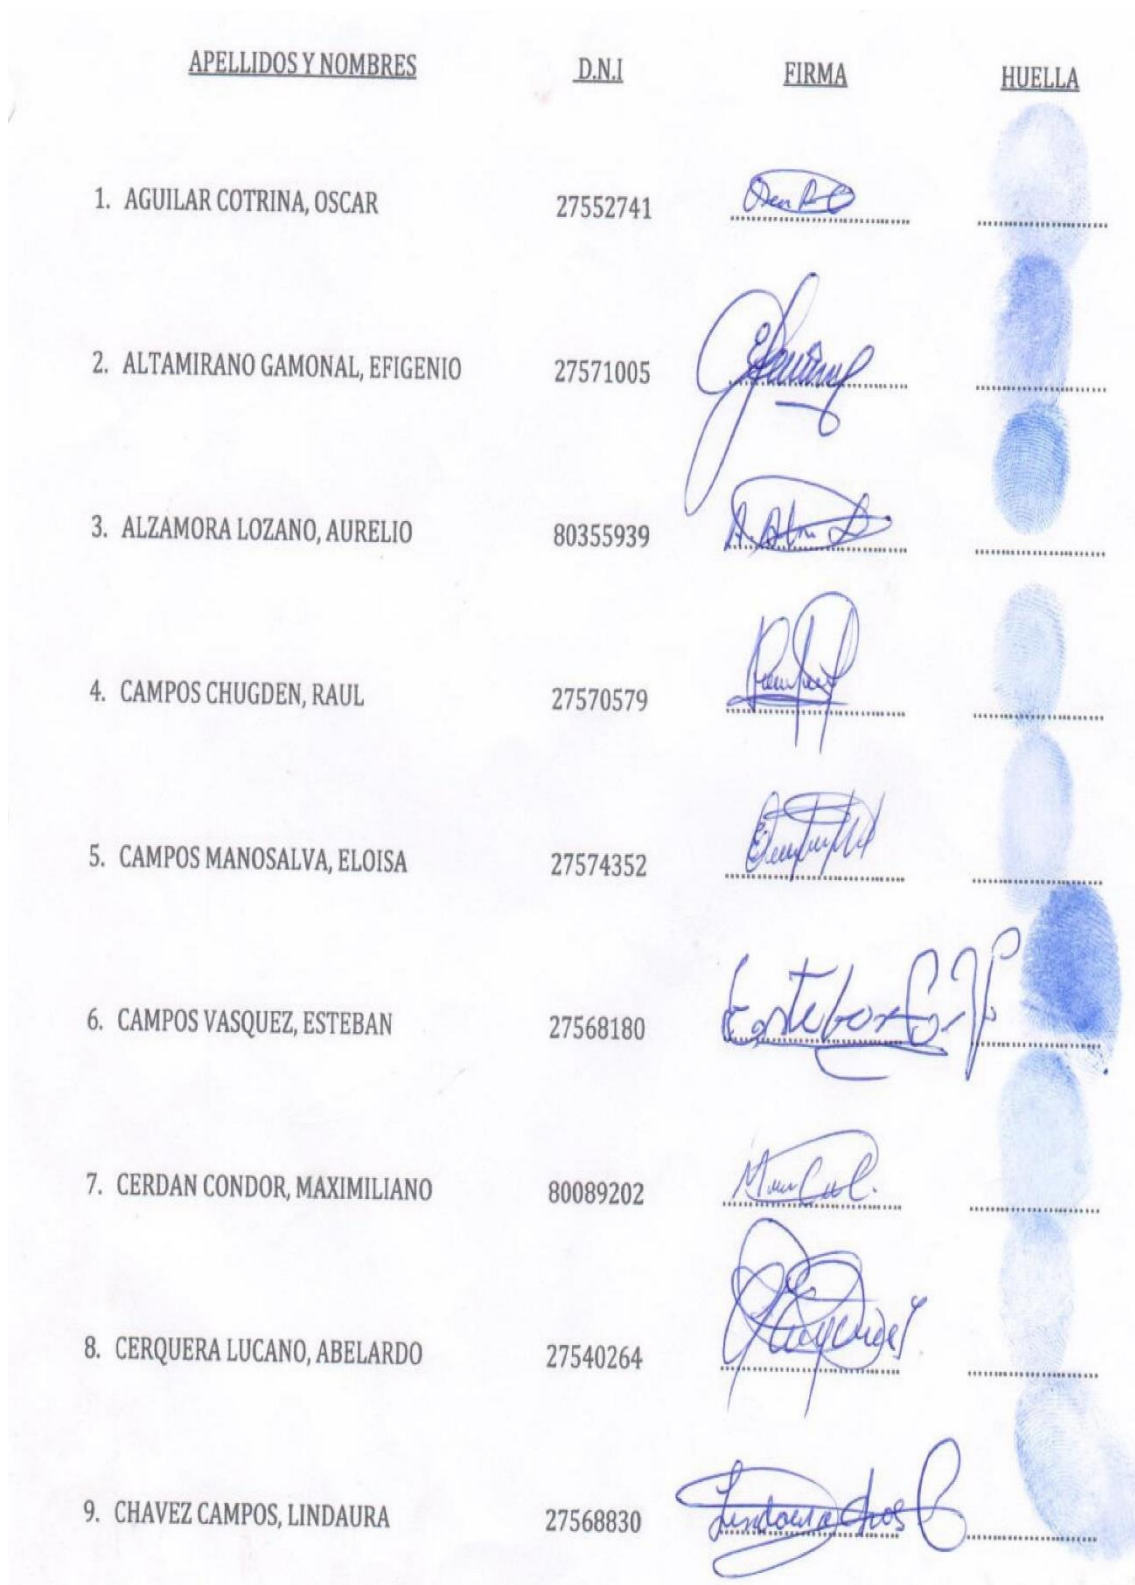 APELLIDOS Y NOMBRES D.N.I FIRMA HUELLA
1. AGUILAR COTRINA, OSCAR 27552741
2. ALTAMIRANO GAMONAL, EFIGENIO 27571005
3. ALZAMORA LOZANO, AURELIO 80355939
4. CAMPOS CHUGDEN, RAUL 27570579
5. CAMPOS MANOSALVA, ELOISA 27574352
6. CAMPOS VASQUEZ, ESTEBAN 27568180 Esteban C. V.
7. CERDAN CONDOR, MAXIMILIANO 80089202
8. CERQUERA LUCANO, ABELARDO 27540264
9. CHAVEZ CAMPOS, LINDAURA 27568830 Lindaura